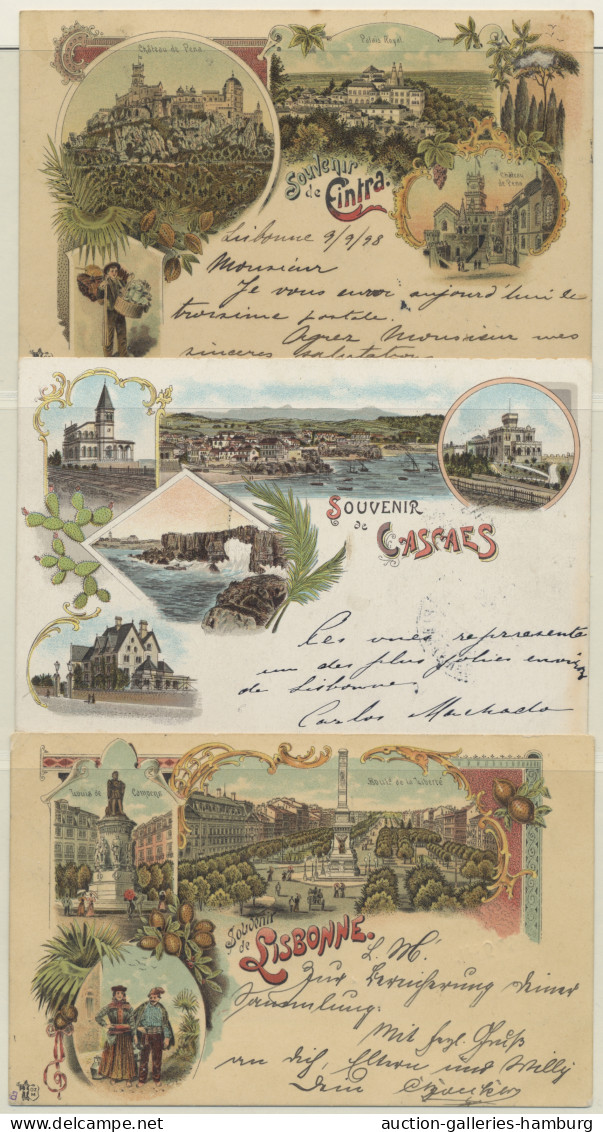 Château de Pena
Palais Royal
Souvenir
de Cintra.
Château
de Pena
Lisbonne 9/9/98
Monsieur
Je vous envoi aujourd'hui le
troisime postale.
Agrez Monsieur mes
sinceres salutations
SOUVENIR
de CASCAES
Ces vues representa
un des plus jolies environ
de Lisbonne
Carlos Machado
Louis de Camoens
de la Liberté
Souvenir
de LISBONNE.
L. M.
Zur Bereicherung deiner
Sammlung.
Mit hzgl. Gruß
an dich, Eltern und Willy
Dein
auction-galleries-hamburg.com